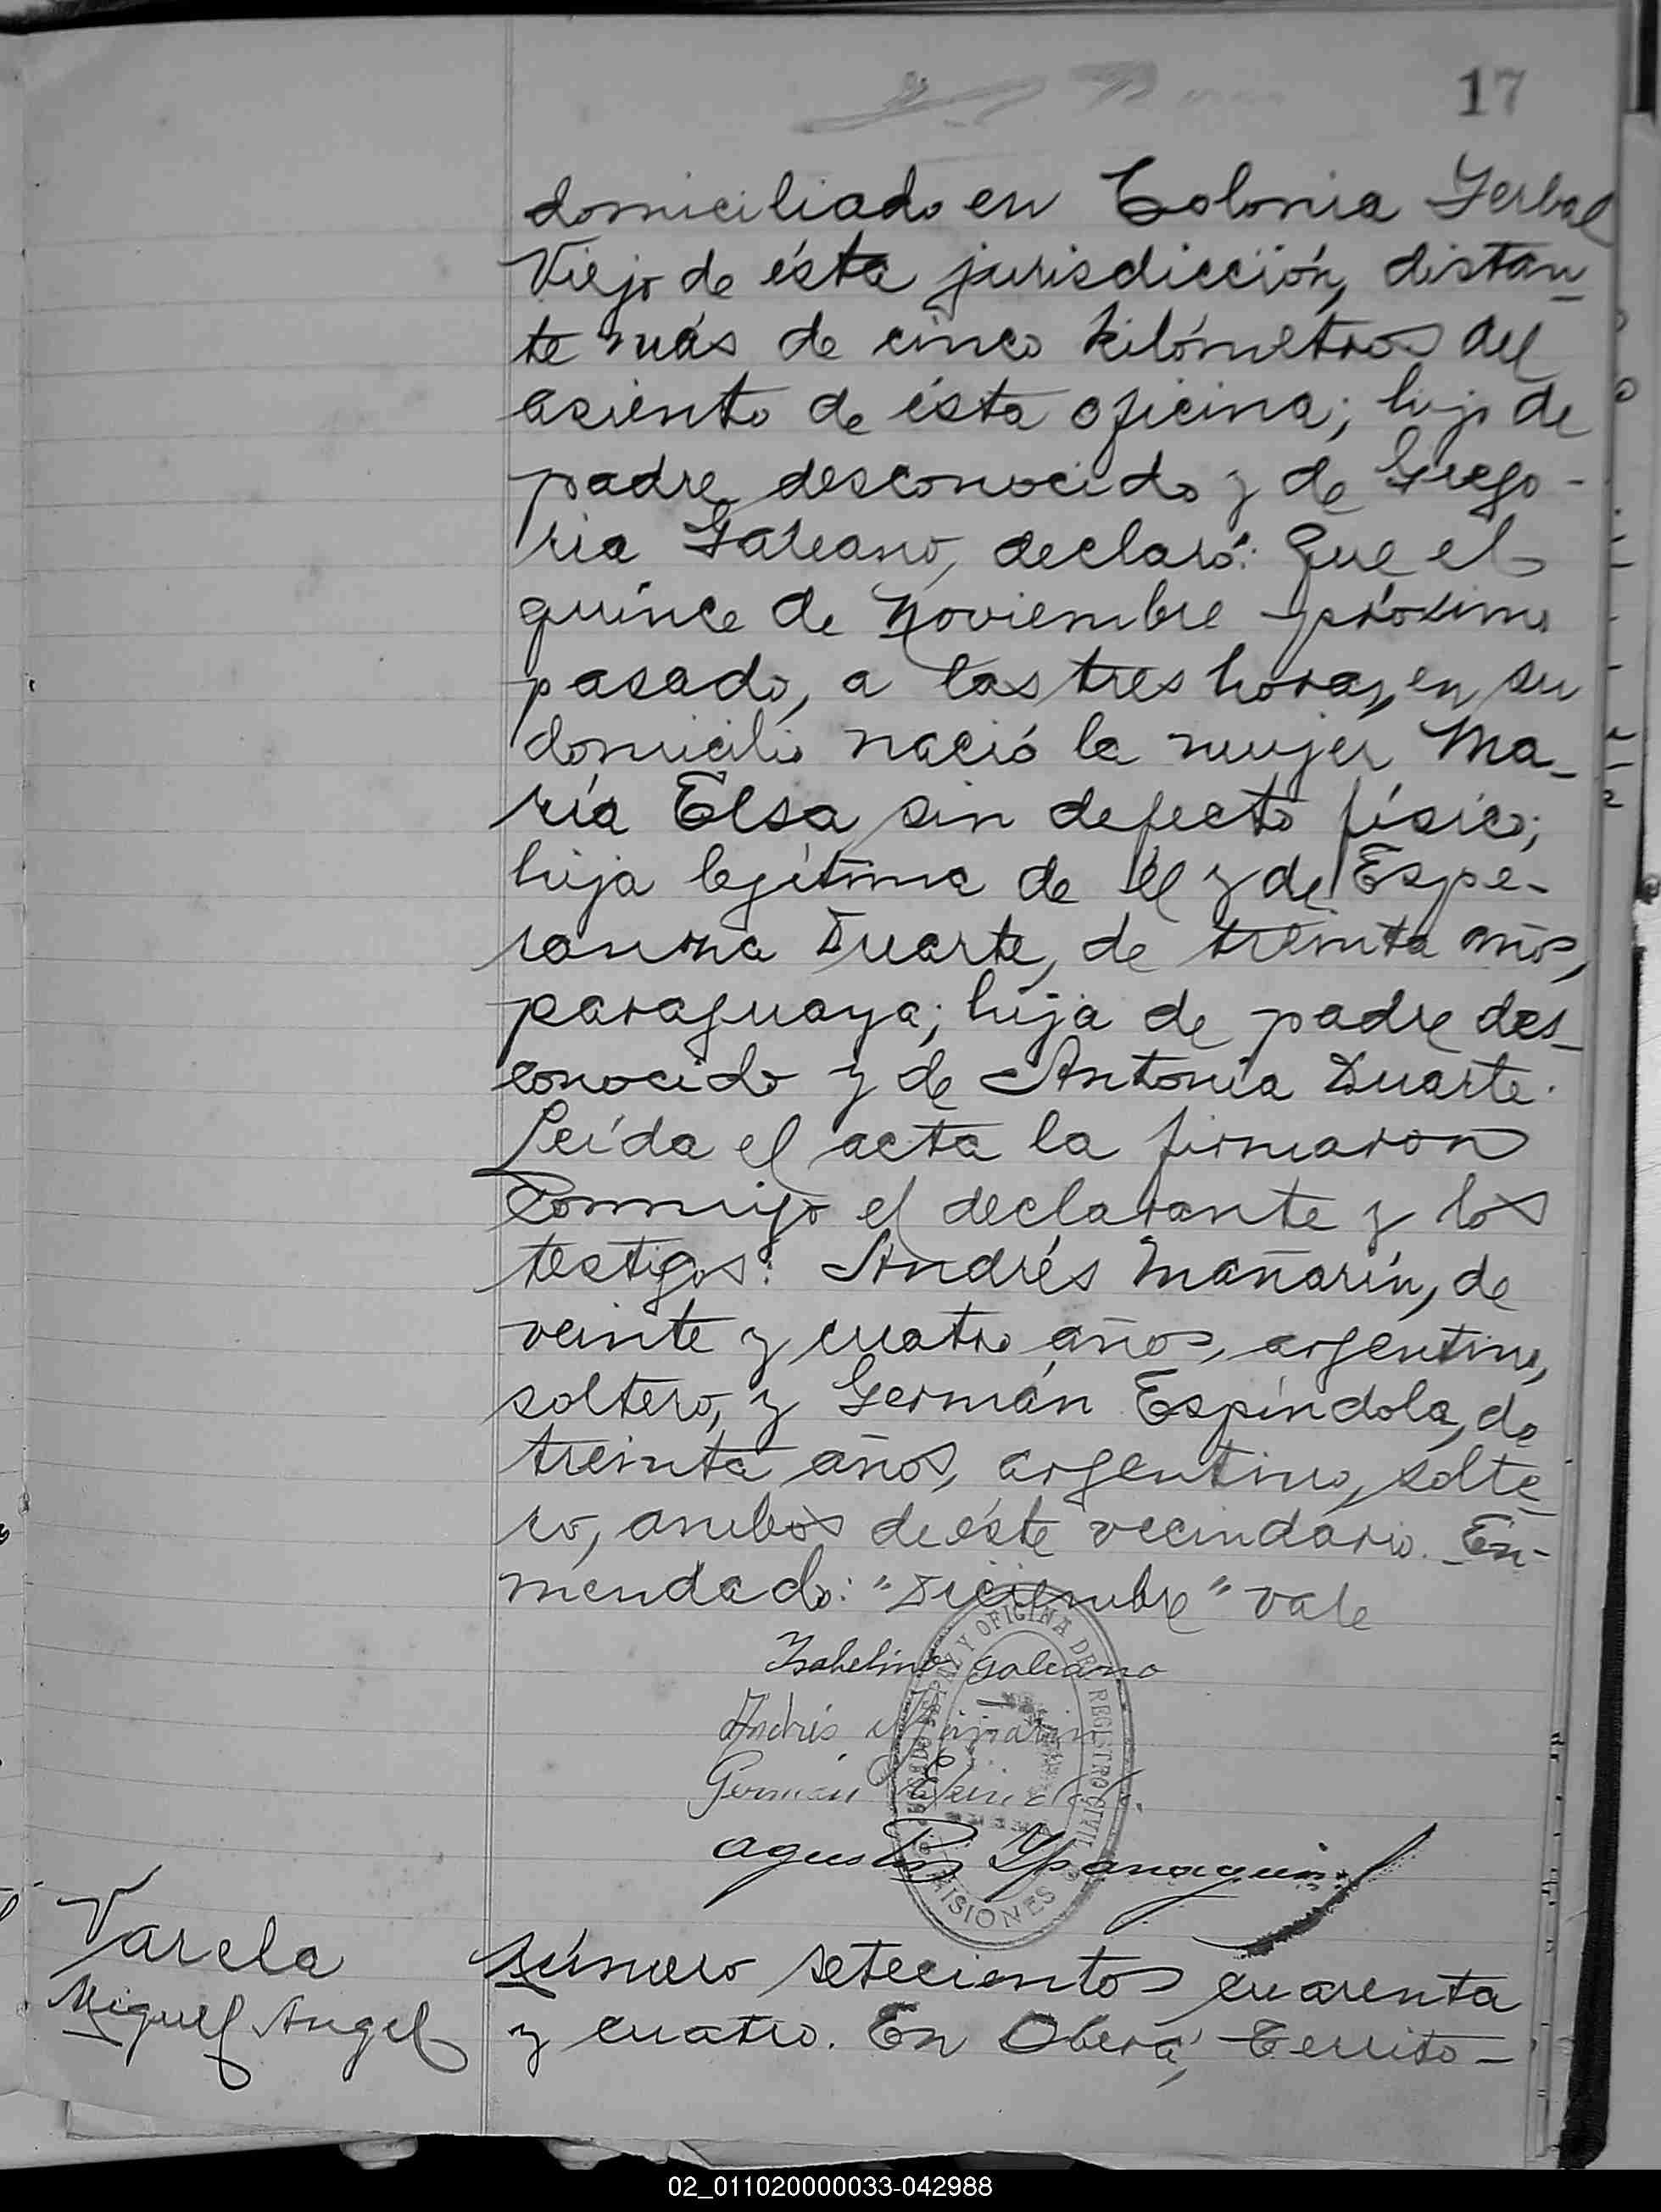 17
domiciliado en Colonia Yerbal
Viejo de ésta jurisdicción, distan-
te más de cinco kilómetros del
asiento de ésta oficina; hijo de
padre desconocido y de Grego-
ria Galeano, declaró: Que el
quince de Noviembre próximo
pasado, a las tres horas, en su
domicilio nació la mujer Ma-
ría Elsa sin defecto físico;
hija legítima de él y de Espe-
ranza Duarte, de treinta años,
paraguaya; hija de padre des-
conocido y de Antonia Duarte.
Leída el acta la firmaron
conmigo el declarante y los
testigos: Andrés Mañarín, de
veinte y cuatro años, argentino,
soltero, y Germán Espíndola, de
treinta años, argentino, solte-
ro, ambos de éste vecindario. En-
mendado: "Diciembre" vale
Isabelino Galeano
Andrés
Germán
Agustin
JUZGADO DE PAZ Y OFICINA DEL REGISTRO CIVIL
MISIONES
Varela
Miguel Angel
Número setecientos cuarenta
y cuatro. En Oberá, Territo-
02_011020000033-042988